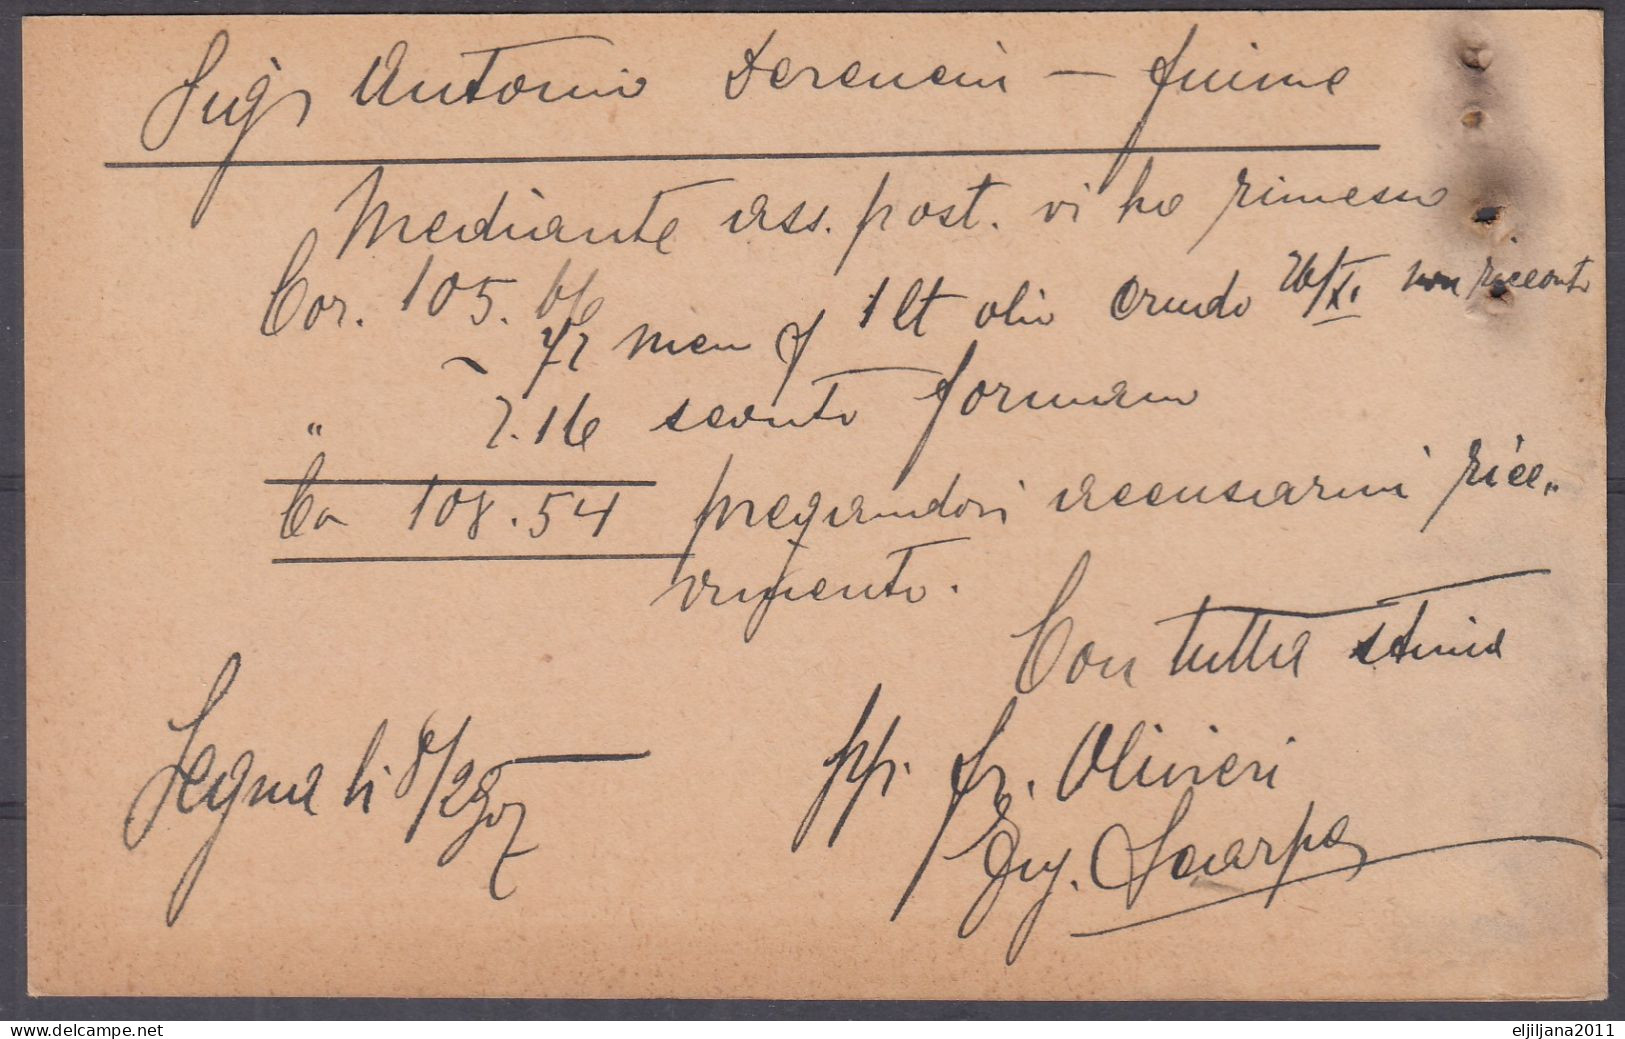 Sigr Antonio Derencin — Fiume
Mediante ass. post. vi ho rimesso
Cor. 105.66
~ 72 meno 1 lt olio crudo 26/XI. non ricevuto
" 2.16 sconto formano
Co 108.54 pregandovi accusarmi rice„
vimento.
Con tutta stima
Segna li 8/2 907
ppi. Fr. Olivieri
Eug. Scarpa
eljiljana2011
delcampe.net